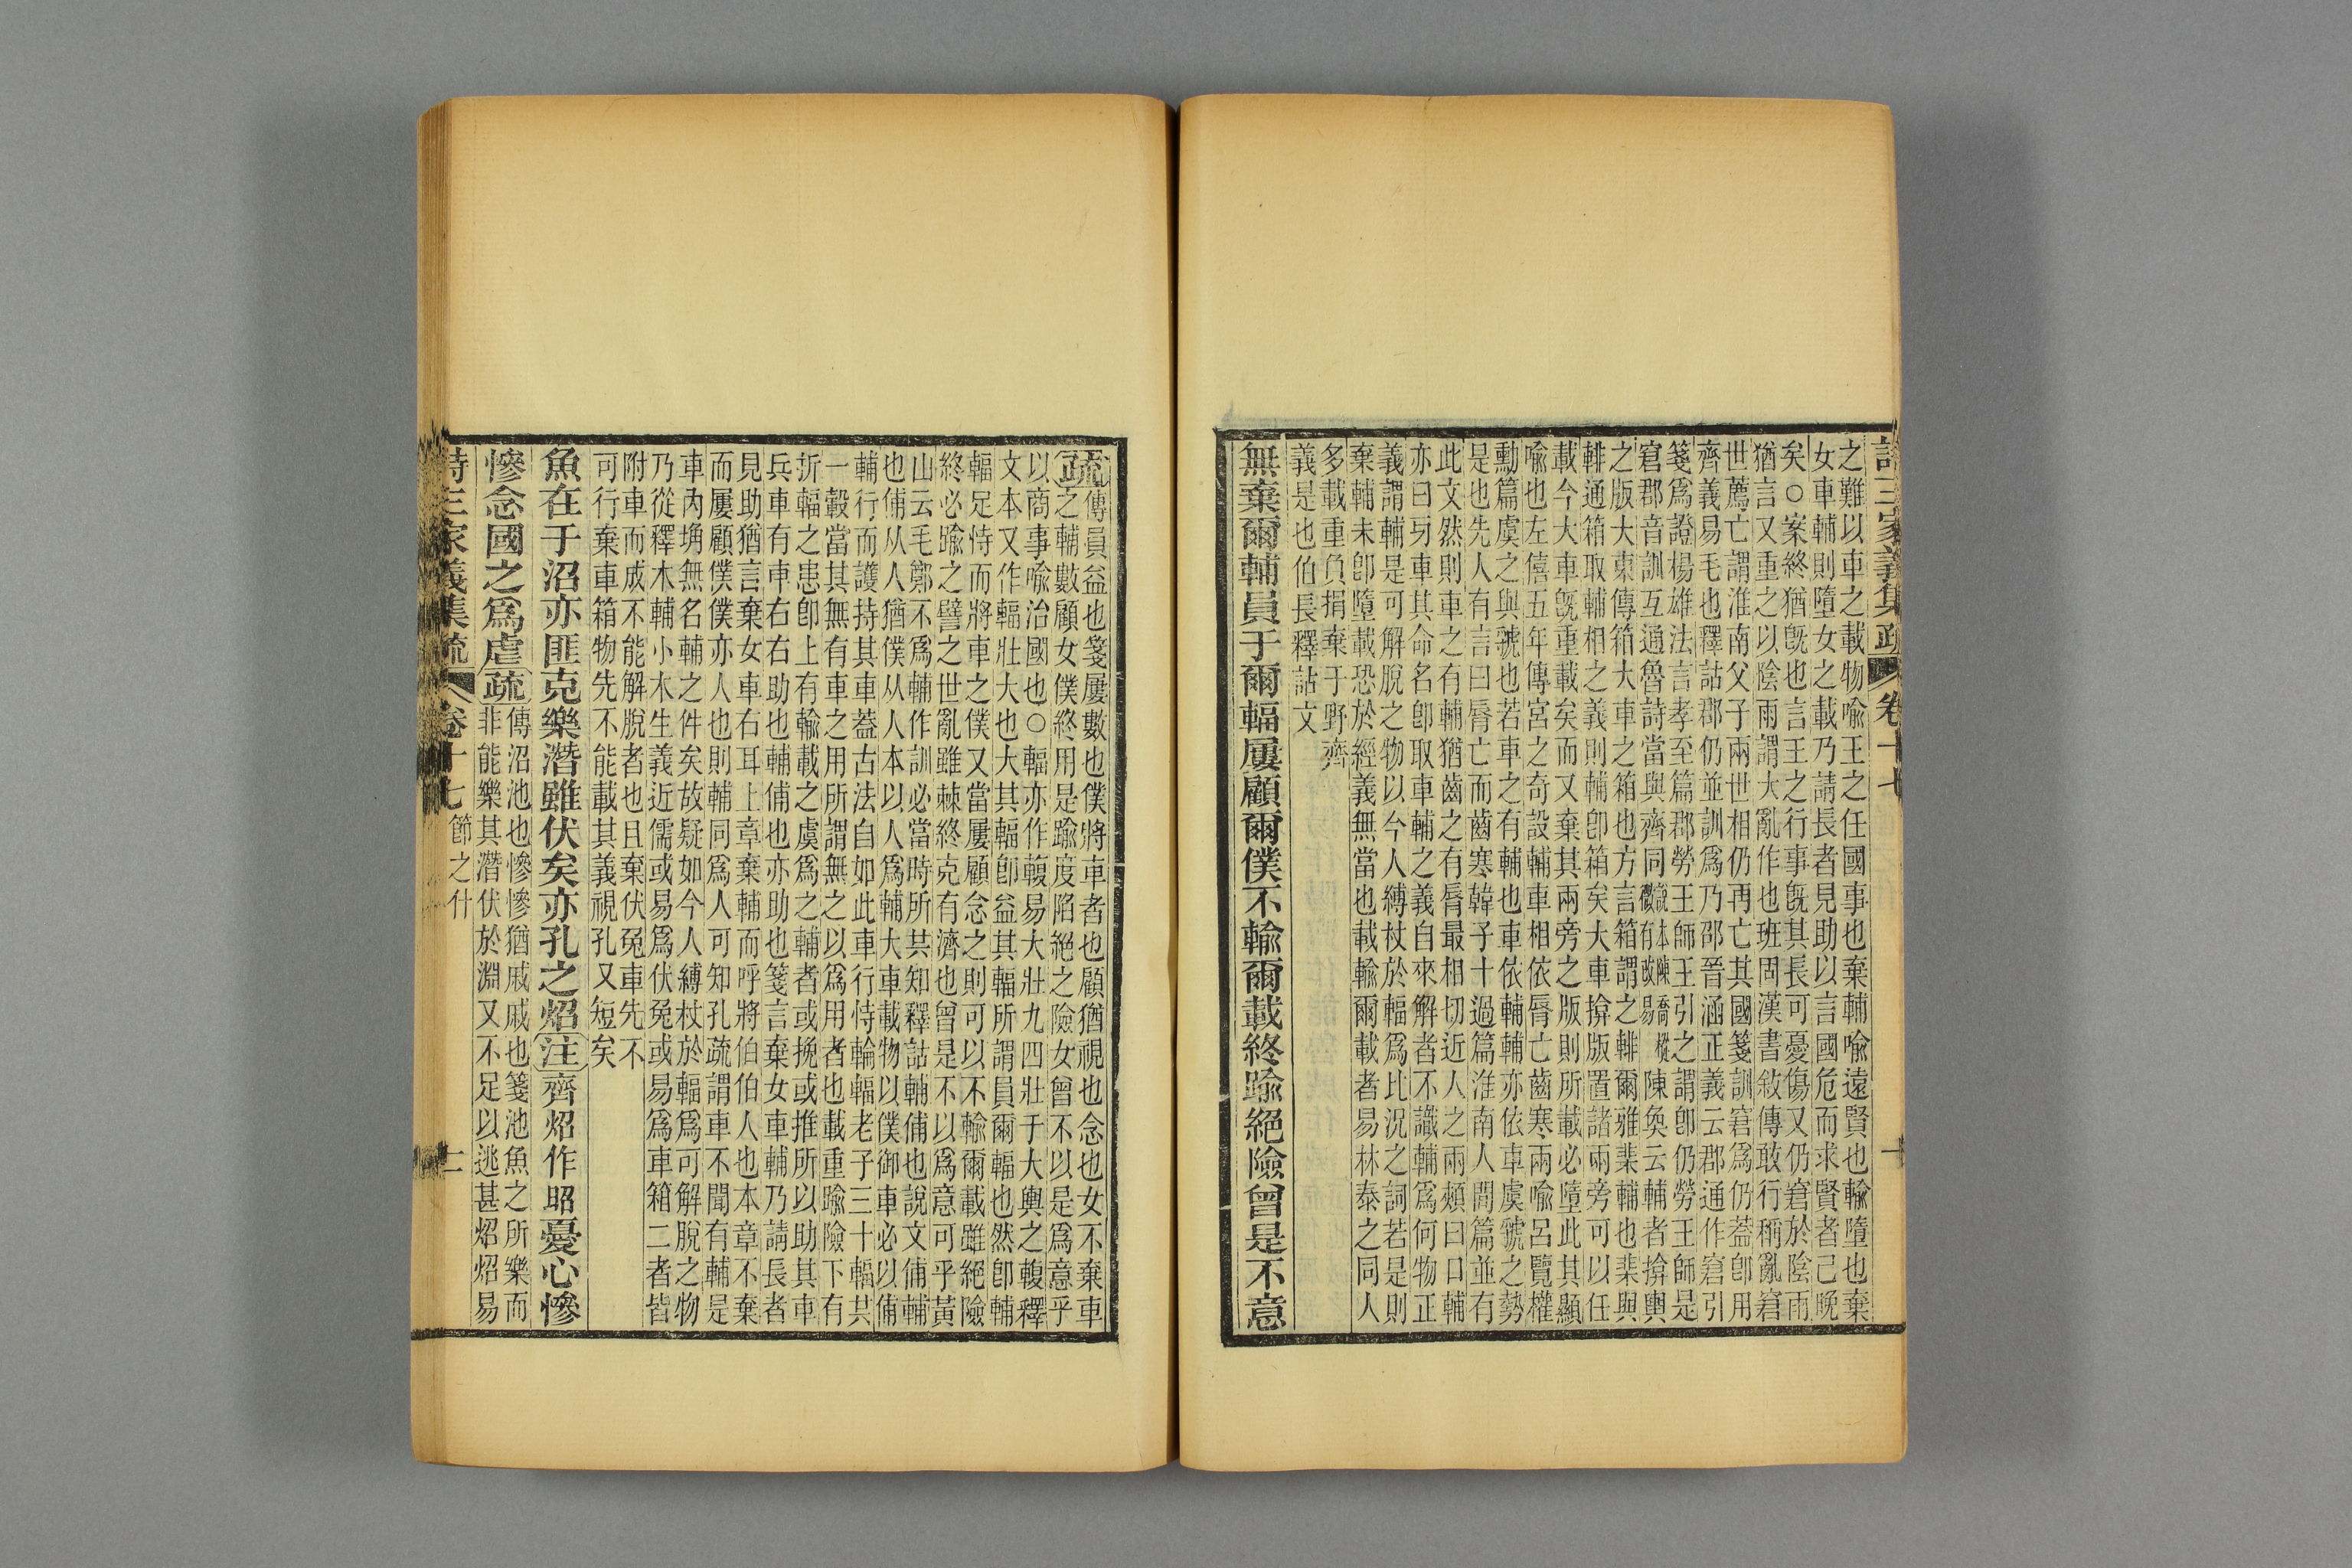 詩三家義集疏 卷十七
之難以車之載物喻王之任國事也棄輔喻遠賢也輸墮也棄
女車輔則墮女之載乃請長者見助以言國危而求賢者己晚
矣○案終猶旣也言王之行事旣其長可憂傷又仍窘於陰雨
猶言又重之以陰雨謂大亂作也班固漢書敘傳敢行稱亂窘
世薦亡謂淮南父子兩世相仍再亡其國箋訓窘爲仍蓋卽用
齊義易毛也釋詁郡仍並訓爲乃邵晉涵正義云郡通作窘引
箋爲證楊雄法言孝至篇郡勞王師王引之謂卽仍勞王師是
窘郡音訓互通魯詩當與齊同
陳奐云輔者揜輿
之版大東傳箱大車之箱也方言箱謂之輫爾雅棐輔也棐與
輫通箱取輔相之義則輔卽箱矣大車揜版置諸兩旁可以任
載今大車旣重載矣而又棄其兩旁之版則所載必墮此其顯
喻也左僖五年傳宮之奇設輔車相依脣亡齒寒兩喻呂覽權
勳篇虞之與虢也若車之有輔也車依輔輔亦依車虞虢之勢
是也先人有言曰脣亡而齒寒韓子十過篇淮南人閒篇並有
此文然則車之有輔猶齒之有脣最相切近人之兩頰曰口輔
亦曰牙車其命名卽取車輔之義自來解者不識輔爲何物正
義謂輔是可解脫之物以今人縛杖於輻爲比況之詞若是則
棄輔未卽墮載恐於經義無當也載輸爾載者易林泰之同人
多載重負捐棄于野齊
義是也伯長釋詁文
無棄爾輔員于爾輻屢顧爾僕不輸爾載終踰絕險曾是不意
疏傳員益也箋屢數也僕將車者也顧猶視也念也女不棄車
之輔數顧女僕終用是踰度陷絕之險女曾不以是爲意乎
以商事喻治國也○輻亦作輹易大壯九四壯于大輿之輹釋
文本又作輻壯大也大其輻卽益其輻所謂員爾輻也然卽輔
輻足恃而將車之僕又當屢顧念之則可以不輸爾載雖絕險
終必踰之譬之世亂雖棘終克有濟也曾是不以爲意可乎黃
山云毛鄭不爲輔作訓必當時所共知釋詁輔俌也說文俌輔
也俌从人猶僕从人本以人爲輔大車載物以僕御車必以俌
輔行而護持其車蓋古法自如此車行恃輪輻老子三十輻共
一轂當其無有車之用所謂無之以爲用者也載重踰險下有
折輻之患卽上有輸載之虞爲之輔者或挽或推所以助其車
兵車有車右右助也輔俌也亦助也箋言棄女車輔乃請長者
見助猶言棄女車右耳上章棄輔而呼將伯伯人也本章不棄
而屢顧僕僕亦人也則輔同爲人可知孔疏謂車不聞有輔是
車內埆無名輔之件矣故疑如今人縛杖於輻爲可解脫之物
乃從釋木輔小木生義近儒或易爲伏兔或易爲車箱二者皆
附車而成不能解脫者也且棄伏兔車先不
可行棄車箱物先不能載其義視孔又短矣
魚在于沼亦匪克樂潛雖伏矣亦孔之炤注齊炤作昭憂心慘
慘念國之爲虐疏傳沼池也慘慘猶戚戚也箋池魚之所樂而
非能樂其潛伏於淵又不足以逃甚炤炤易
詩三家義集疏 卷十七 節之什 二